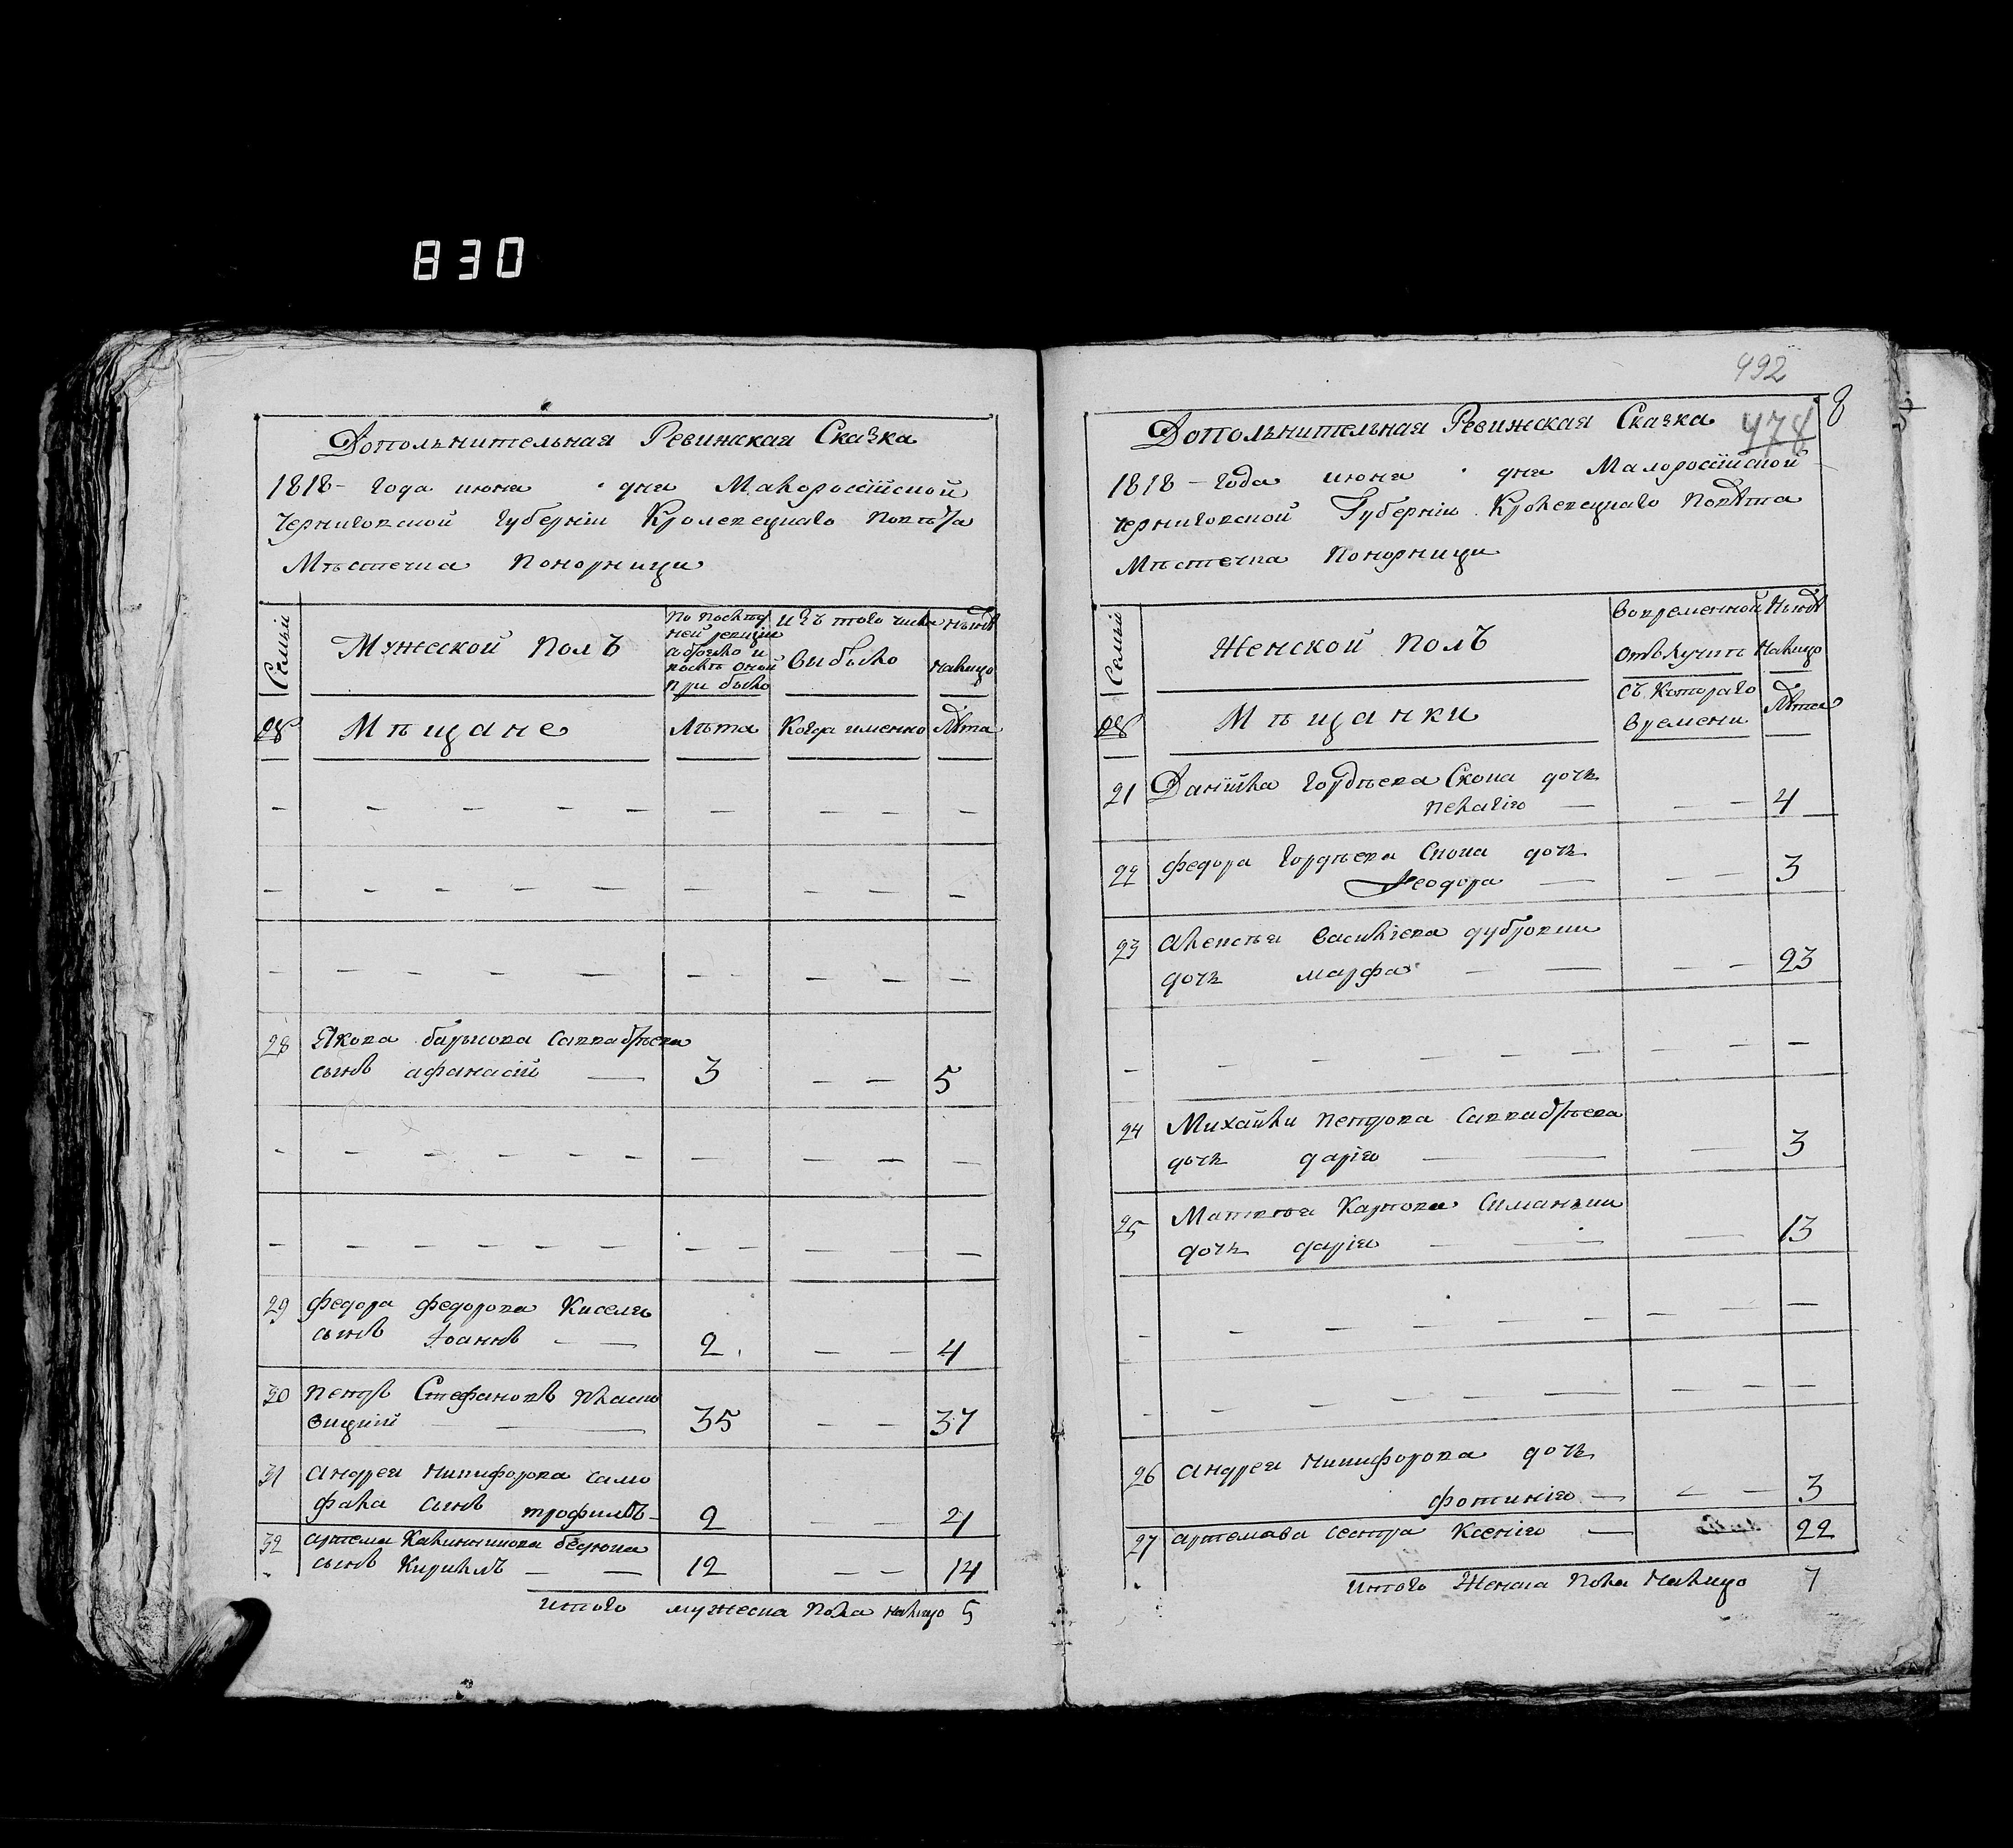 830
Дополънительная Ревижская Сказка
1818 - года июня дня Малоросійской
Черниговской Губерніи Кролевецкаго Повѣта
Мѣстечка Понорници
Семьи
Мужеской Полъ
По послѣд
ней ревизіи
состояло и
послѣ оной
при было
Изъ того числа
вибыло
Нынѣ
налицо
№
Мѣщане
Лѣта
Когда именно
Лѣта
28 Якова Савѣева
сынъ афанасій — 3 — — 5
29 Федора Федорова Киселя
сынъ Іоаннъ — — 2 — — 4
30 Петръ Стефановъ
вицкій — 35 — — 37
31 Андрея Никифорова само
фала сынъ трофимъ 2 — — 4
32 Артема Калинникова
сынъ Кирилъ — — 12 — — 14
Итого мужеска Пола налицо 5
492
478
8
Дополънительная Ревижская Сказка
1818 - года июня дня Малоросійской
Черниговской Губерніи Кролевецкаго Повѣта
Мѣстечка Понорници
Семьи
Женской Полъ
Вовременной
отълучкѣ
Нынѣ
Налицо
№
Мѣщанки
Съ Котораго
Времени
Лѣта
21 Данійла Гордѣева Скопа дочь
Пелагія — — — 4
22 Федора Гордѣева Скопа дочь
Феодора — — — 3
23 Алексѣя Василіева
дочь Марфа — — — — 23
24 Михайли Петрова
дочь Дарія — — 3
25 Матвѣя Карпова
дочь Дарія — — — 13
26 Андрея Никифорова дочь
Фотинія — — — 3
27 Артемава сестра Ксенія — 22
Итого Женска Пола Налицо 7